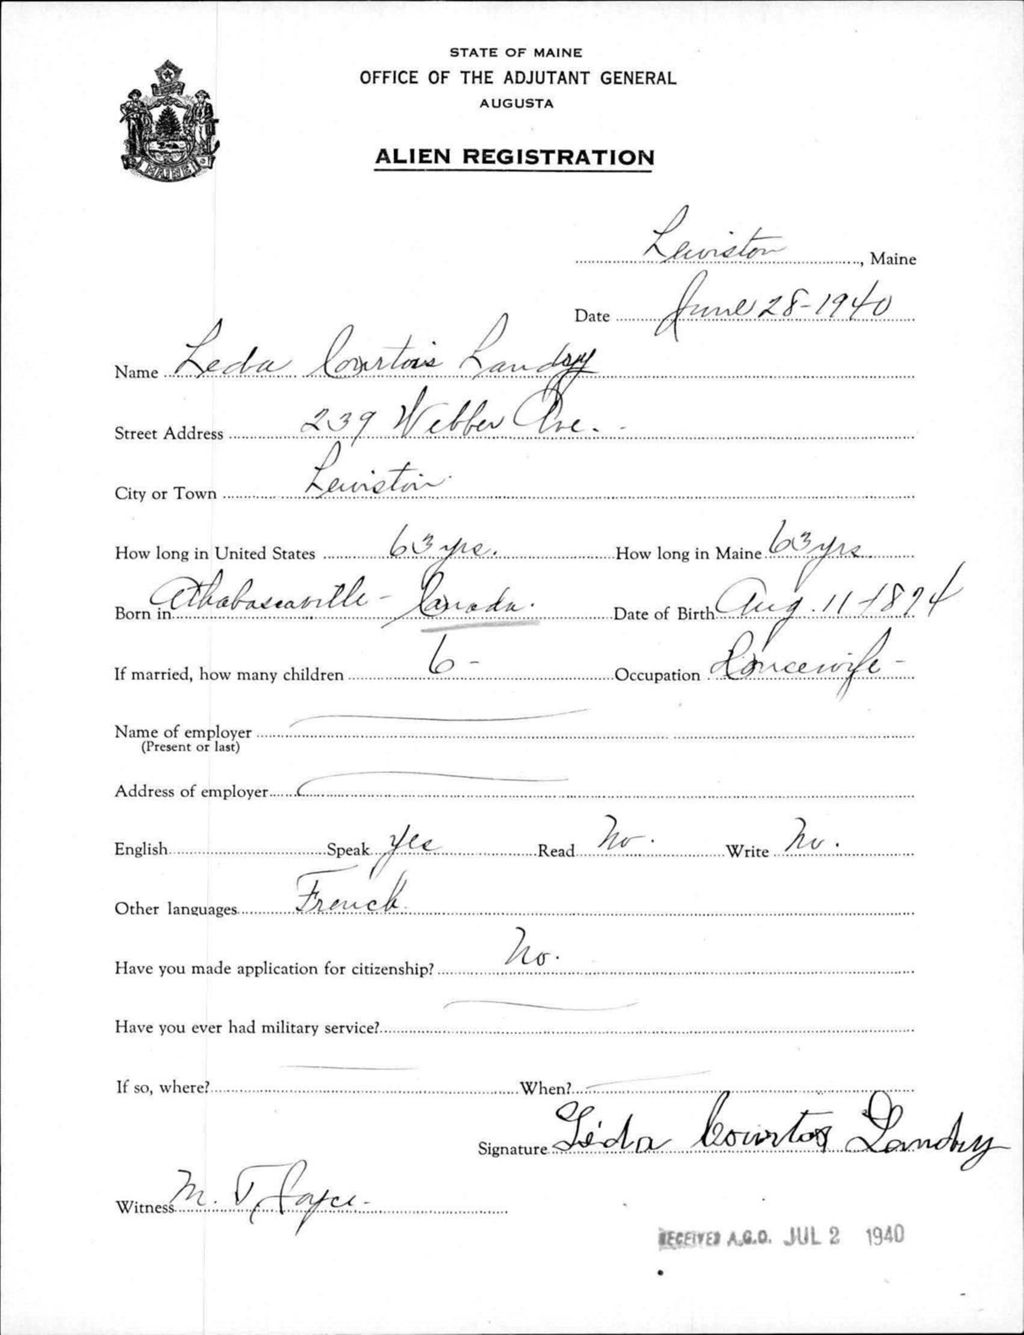 STATE OF MAINE
OFFICE OF THE ADJUTANT GENERAL
AUGUSTA
ALIEN REGISTRATION
MAINE
Lewiston, Maine
Date June 28-1940
Name Leda Courtois Landry
Street Address 239 Webber Ave.
City or Town Lewiston
How long in United States 63 yrs. How long in Maine 63 yrs
Born in Athabascaville - Canada. Date of Birth Aug. 11-1874
If married, how many children 6- Occupation Housewife-
Name of employer
(Present or last)
Address of employer
English Speak Yes Read No. Write No.
Other languages French
Have you made application for citizenship? No.
Have you ever had military service?
If so, where? When?
Signature Léda Courtois Landry
Witness M. T. Joyce
RECEIVED A.G.O. JUL 2 1940